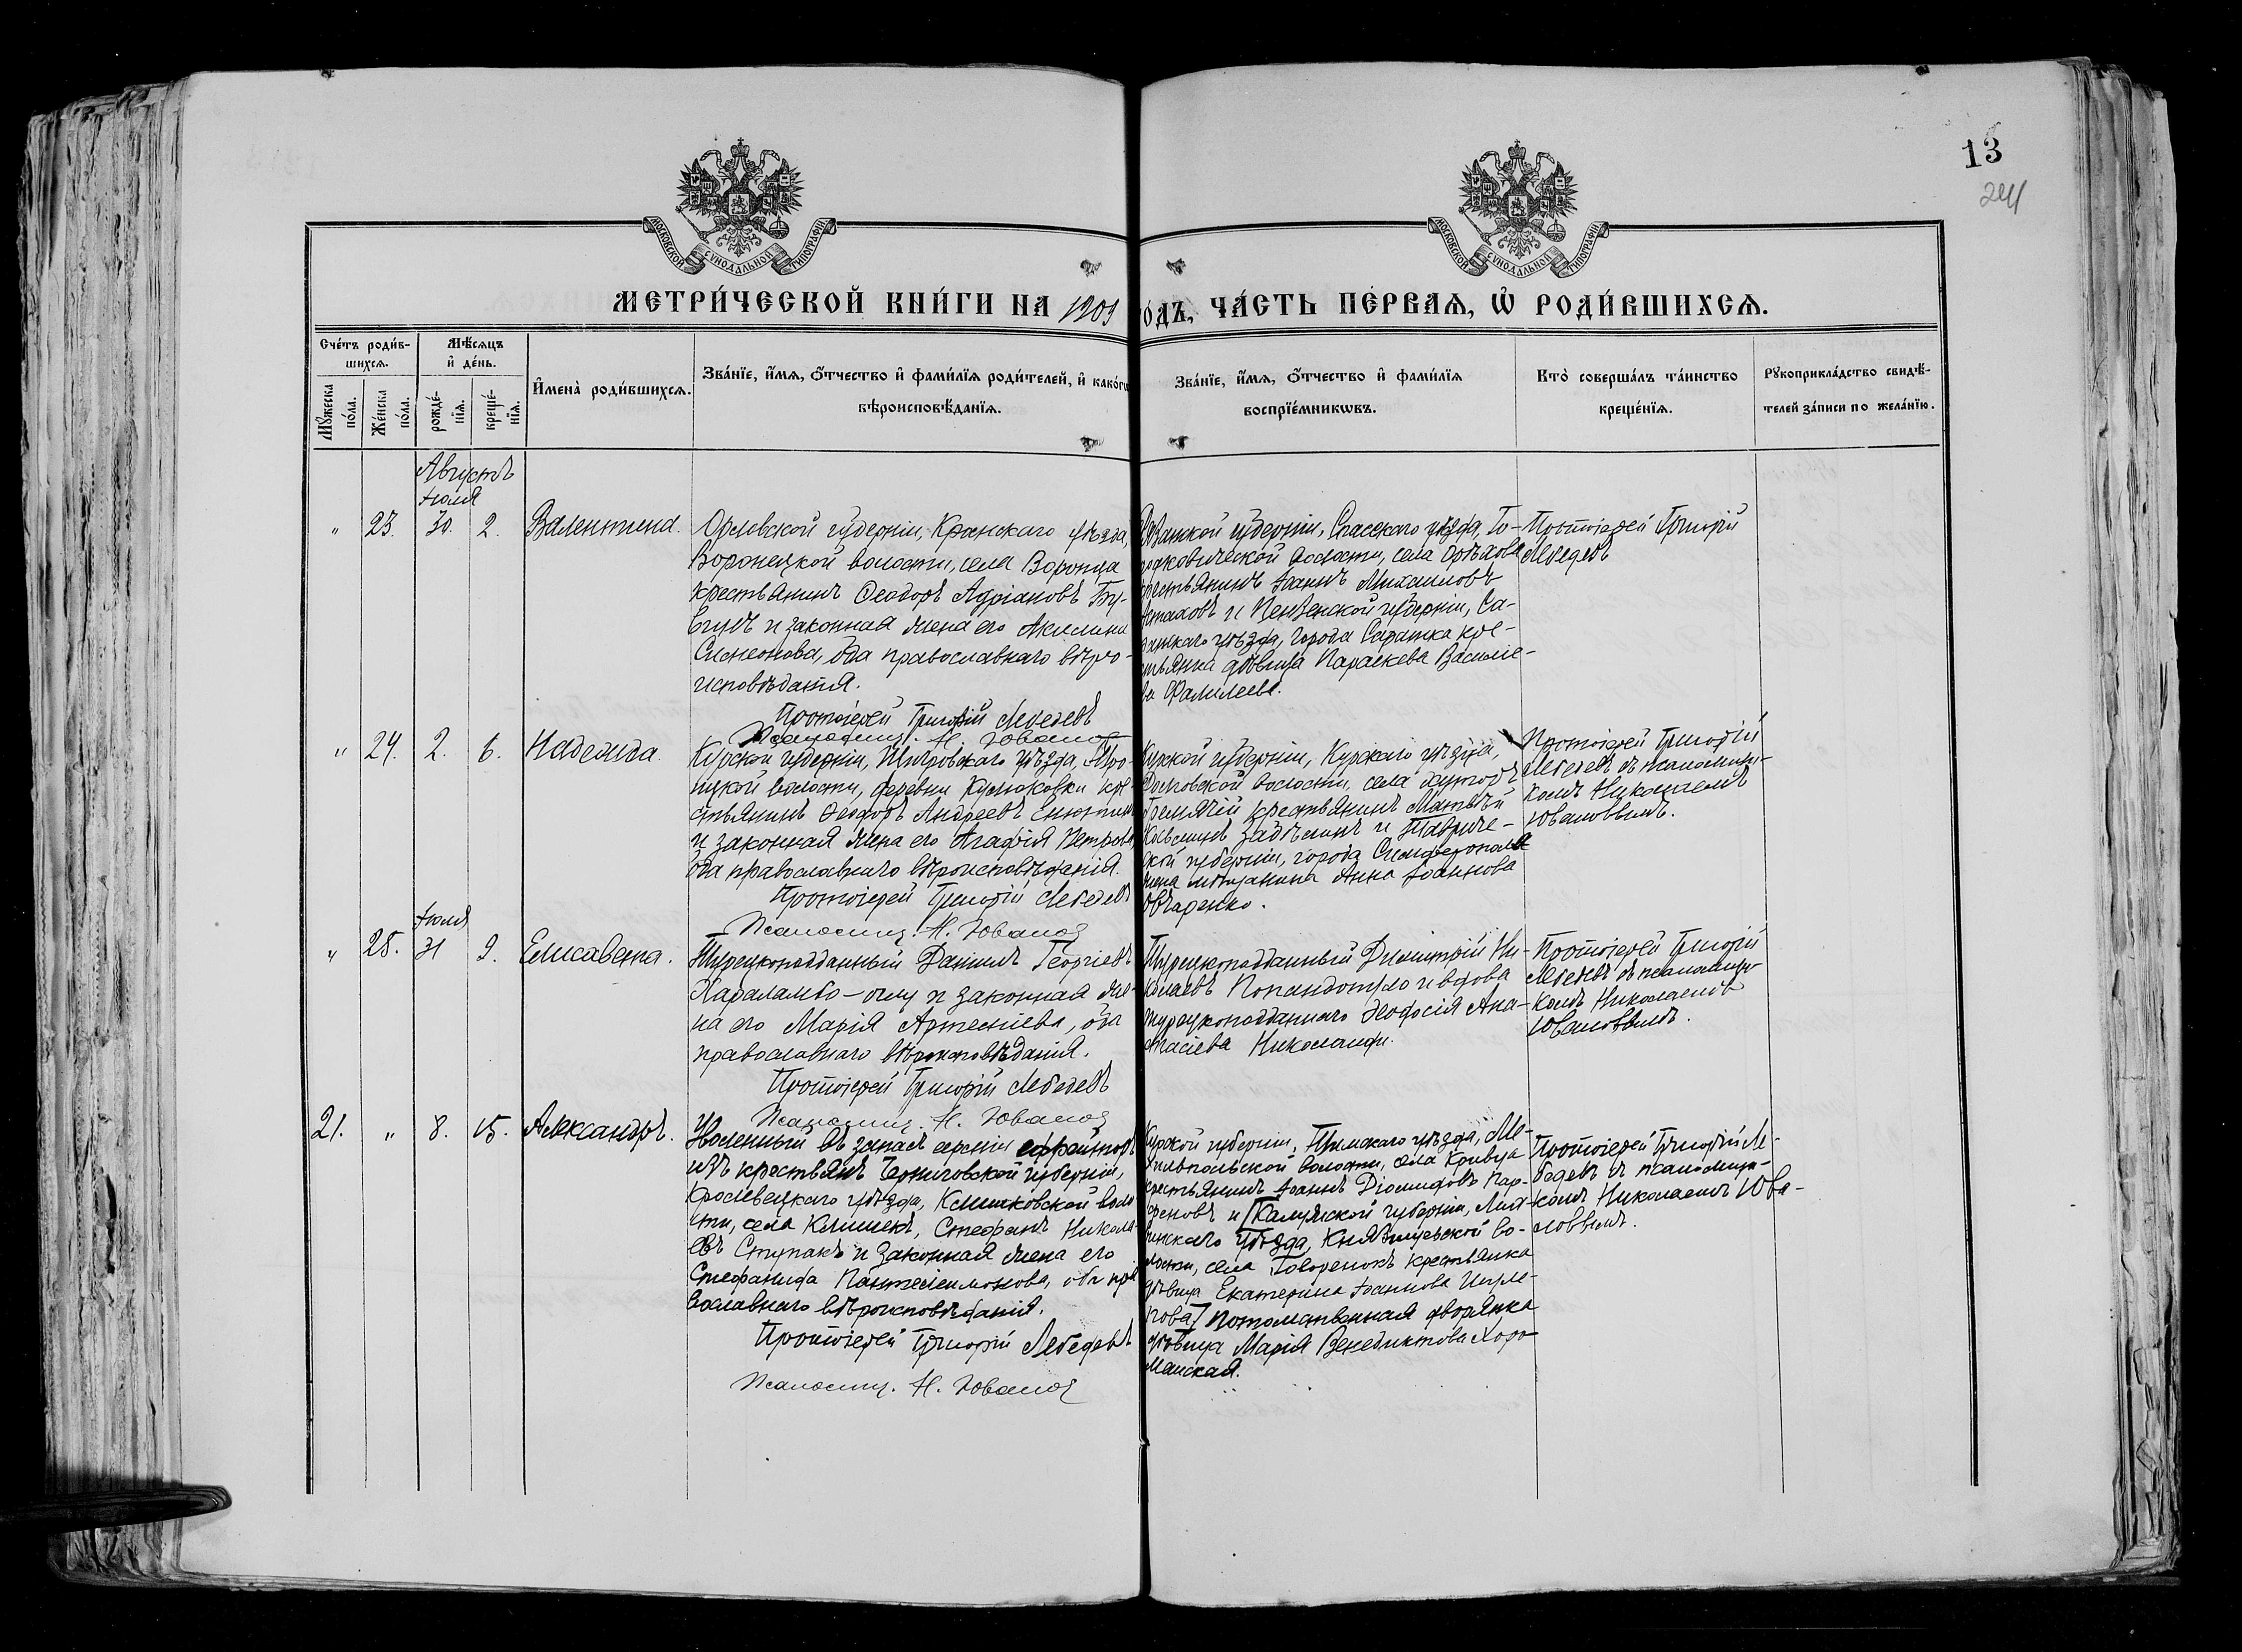 13
244
МОСКОВСКОЙ СѴНОДАЛЬНОЙ ТИПОГРАФІИ
МОСКОВСКОЙ СѴНОДАЛЬНОЙ ТИПОГРАФІИ
МЕТРИ́ЧЕСКОЙ КНИ́ГИ НА 1909
ГО́ДЪ, ЧА́СТЬ ПЕ́РВАѦ, Ѡ҆ РОДИ́ВШИХСѦ.
Сче́тъ роди́в-
шихсѧ.
Мꙋ́жеска по́ла.
Же́нска по́ла.
Мѣ́сѧцъ
и҆ де́нь.
рожде́-
нїѧ.
креще́-
нїѧ.
И҆мена̀ роди́вшихсѧ.
Зва́нїе, и҆́мѧ, ѻ҆́тчество и҆ фами́лїѧ роди́телей, и҆ како́гѡ
вѣроисповѣ́данїѧ.
Зва́нїе, и҆́мѧ, ѻ҆́тчество и҆ фами́лїѧ
воспрїе́мникѡвъ.
Кто̀ соверша́лъ та́инство
креще́нїѧ.
Рꙋкоприкла́дство свидѣ́-
телей за́писи по жела́нїю.
Августъ
Іюля
" 23. 30. 2. Валентина.
Орловской губерніи, Кромскаго уѣзда,
Воронецкой волости, села Воронца
крестьянинъ Ѳеодоръ Адріановъ
и законная жена его Акилина
Симеонова, оба православнаго вѣро-
исповѣданія.
Протоіерей Григорій Лебедевъ
Псаломщ. Н. Ювалов
Рязанской губерніи, Спасскаго уѣзда, Го-
родковической волости, села Орѣхова
крестьянинъ Іоаннъ Михаиловъ
и Пензенской губерніи, Са-
ранскаго уѣзда, города Саранска кре-
стьянка дѣвица Параскева Василіе-
ва Фалилеева.
Протоіерей Григорій
Лебедевъ
" 24. 2. 6. Надежда.
Курской губерніи, Щигровскаго уѣзда,
волости, деревни кре-
стьянинъ Ѳеодоръ Андреевъ Енютинъ
и законная жена его Агафія Петрова
оба православнаго вѣроисповѣданія.
Протоіерей Григорій Лебедевъ
Псаломщ. Н. Ювалов
Курской губерніи, Курскаго уѣзда,
волости, села хуторъ
Гремячій крестьянинъ Матвѣй
и Тавриче-
ской губерніи, города Симферополя
жена мѣщанина Анна Іоаннова
Овчаренко.
Протоіерей Григорій
Лебедевъ съ псаломщи-
комъ Николаемъ
Юваловымъ.
Іюля
" 25. 31 9. Елисавета.
Турецкоподданный Даніилъ Георгіевъ
Хараламбо-оглу и законная же-
на его Марія Артеміева, оба
православнаго вѣроисповѣданія.
Протоіерей Григорій Лебедевъ
Псаломщ. Н. Ювалов
Турецкоподданный Димитрій Ни-
колаевъ Попандопуло и вдова
турецкоподданнаго Ѳеодосія Ана-
стасіева
Протоіерей Григорій
Лебедевъ съ псаломщи-
комъ Николаемъ
Юваловымъ.
21. " 8. 15. Александръ.
Уволенный въ запасъ арміи ефрейторъ
изъ крестьянъ Черниговской губерніи,
Кролевецкаго уѣзда, Клишковской воло-
сти, села Клишекъ, Стефанъ Никола-
евъ Ступакъ и законная жена его
Стефанида Пантелеимонова, оба пра-
вославнаго вѣроисповѣданія.
Протоіерей Григорій Лебедевъ
Псаломщ. Н. Ювалов
Курской губерніи, уѣзда,
волости, села Кривца
крестьянинъ Іоаннъ Діомидовъ Пар-
феновъ и [Калужской губерніи, Лих-
винскаго уѣзда, Княжищевской во-
лости, села Говоренокъ крестьянка
дѣвица Екатерина Іоаннова
кова] Потомственная дворянка
дѣвица Марія Венедиктова Хоро-
манская.
Протоіерей Григорій Ле-
бедевъ съ псаломщи-
комъ Николаемъ Юва-
ловымъ.